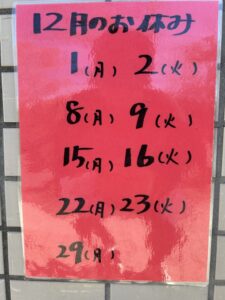 12月のお休み
1(月) 2(火)
8(月) 9(火)
15(月) 16(火)
22(月) 23(火)
29(月)